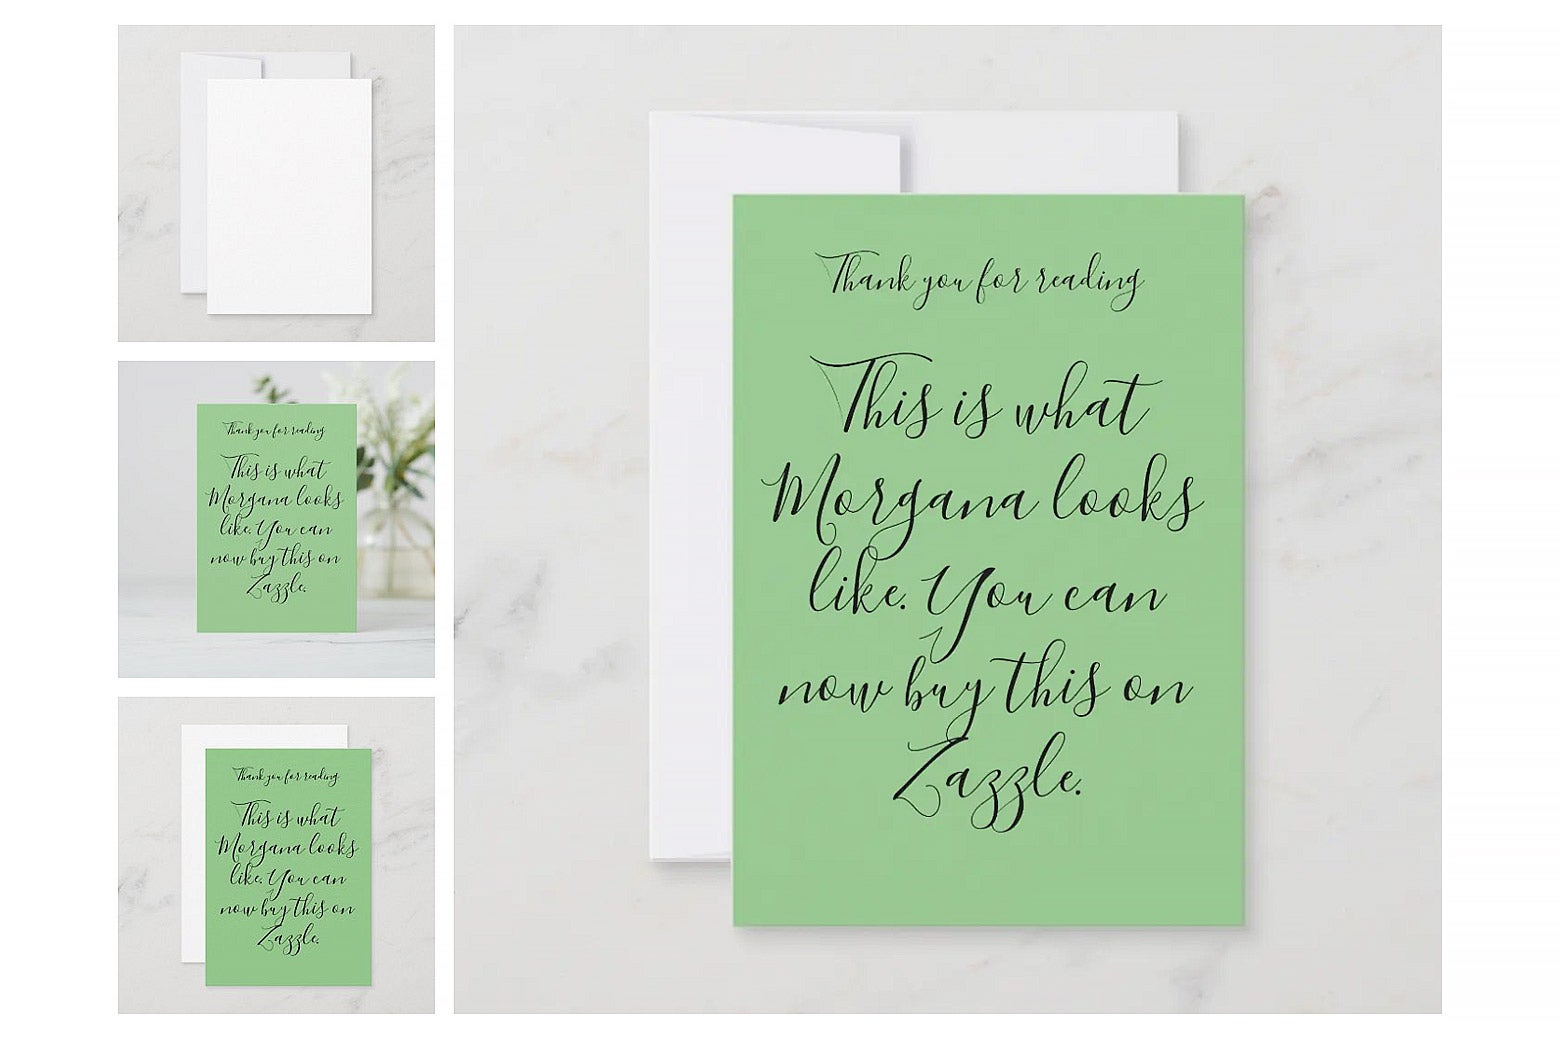 Thank you for reading
This is what
Morgana looks
like. You can
now buy this on
Zazzle.
Thank you for reading
This is what
Morgana looks
like. You can
now buy this on
Zazzle.
Thank you for reading
This is what
Morgana looks
like. You can
now buy this on
Zazzle.